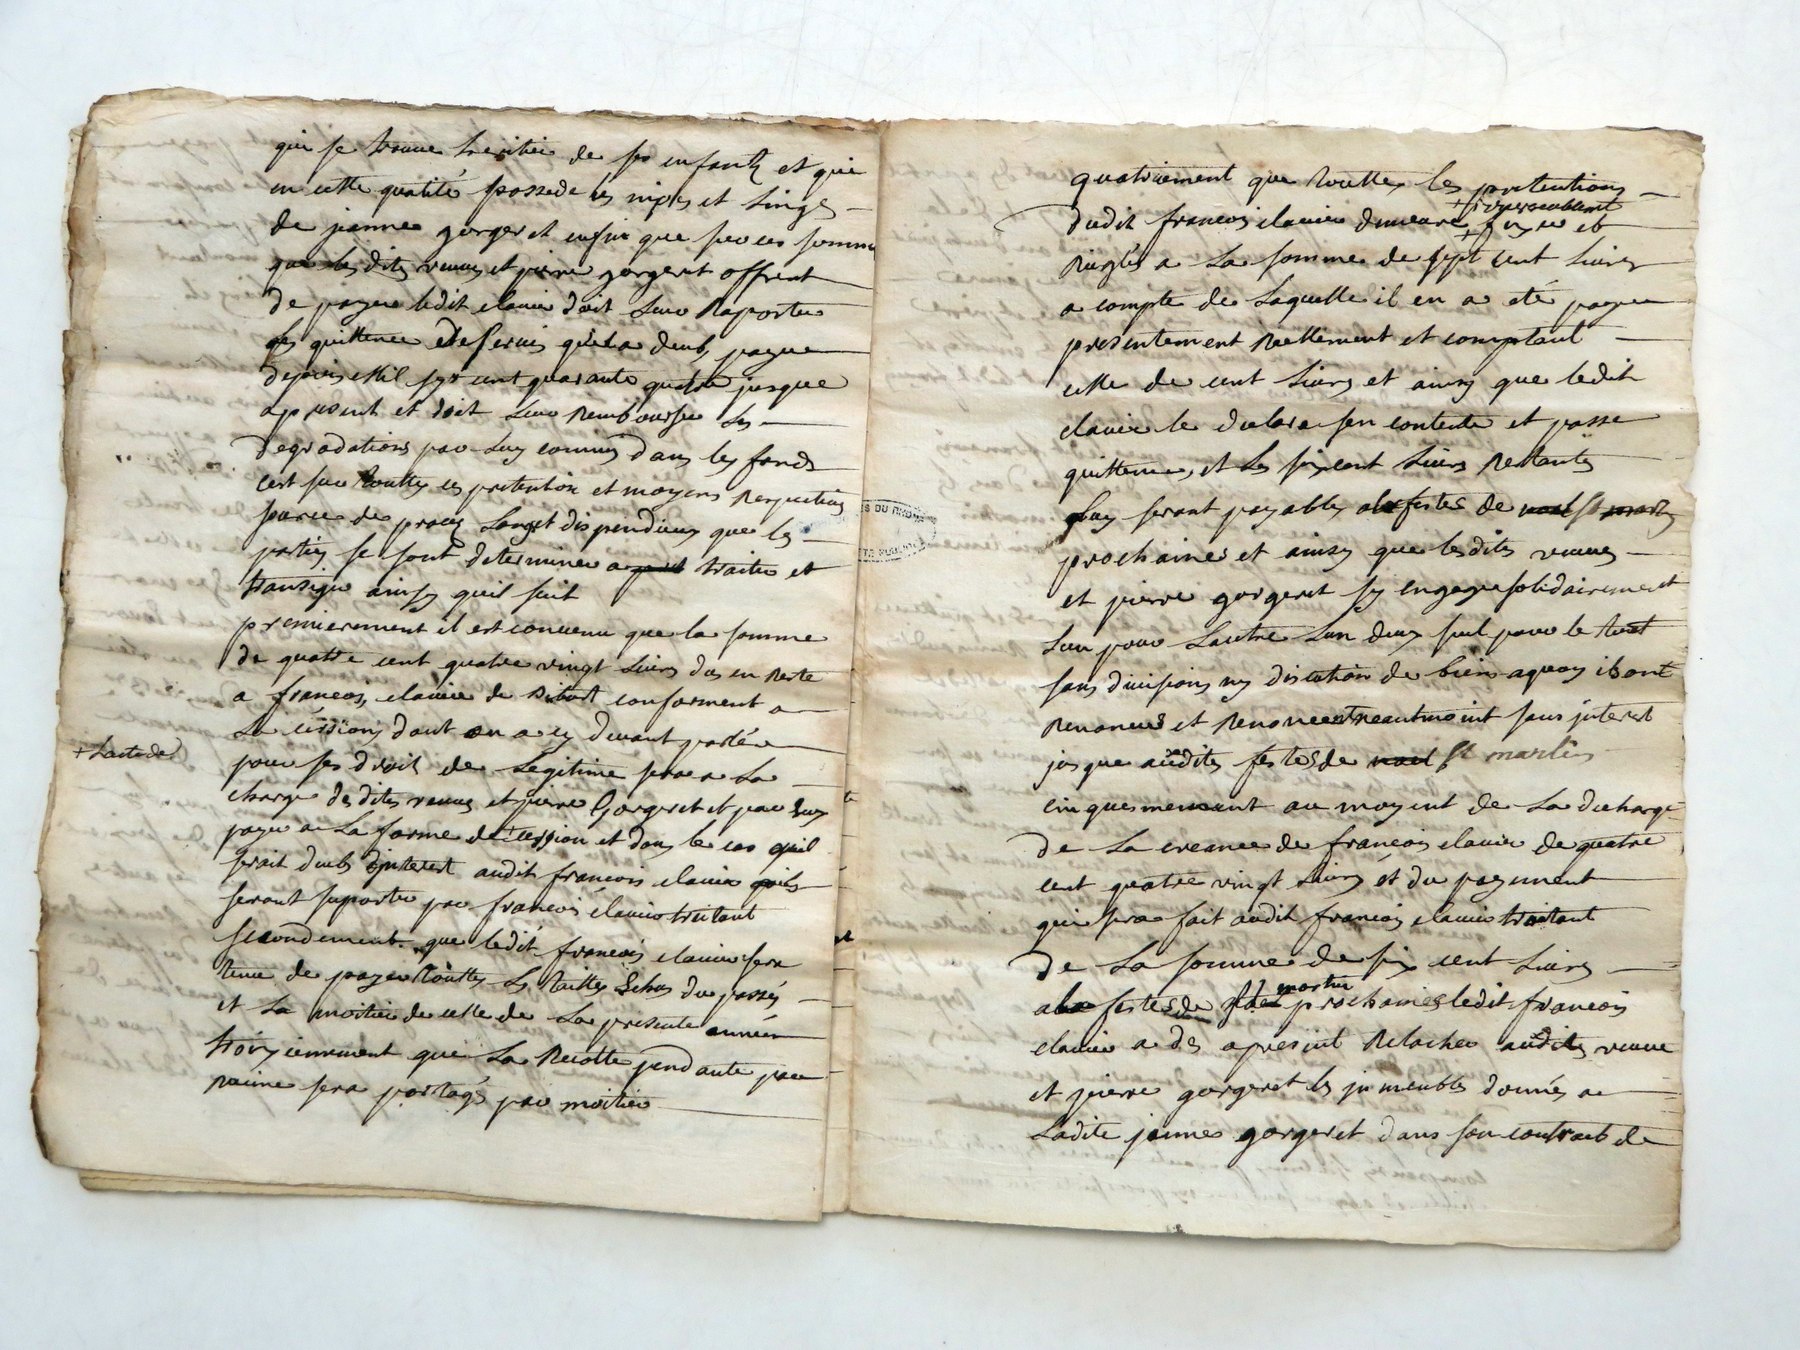 qui se trouve heritier de ses enfantz et qui
en cette qualité possede les nipes et linges
de jeanne gorgeret enfin que sur ces somme
que lesdits veuve et pierre gorgeret offrent
de payer ledit clavier doit leur Raporter
les quittence des servis qu'il a deub payer
depuis Mil sept cent quarante quatre jusque
apresent et doit leur Rembourser les
degradations par luy commis dans les fonds
cest sur touttes ces pretention et moyens Respectives
source de procez long et dispendieux que les
parties se sont determinee a traiter et
transiger ainsy quil suit
premierement il est convenu que la somme
de quatre cent quatre vingt livres dus en Reste
a francois clavier de conforment a
+ Lacte de
La cession dont on a cy devant parlée
pour ses droit de Legitime sera a La
charge desdits veuve et pierre Gorgeret et par eux
payee a La forme de cession et dans le cas quil
serait dueb dinterest audit francois clavier ils
seront suportes par francois clavier traitant
secondement que ledit francois clavier sera
tenu de payer touttes les tailles Echus du passés
et La moitier de celle de La presente année
troisiemement que La Recolte pendante par
racine sera partagé par moitier
quatriement que touttes les pretentions
+ irreversiblement
dudit francois clavier demeure + fixee et
Reiglés a La somme de sept cent livres
a compte de Laquelle il en a eté payee
presentement Reellement et comptant
celle de cent livres et ainsy que ledit
clavier le declare sen contente et passe
quittence, et Les six cent livres Restantes
Luy seront payables a festes de noel st martin
prochaines et ainsy que lesdits veuve
et pierre gorgeret sy engage solidairement
Lun pour Lautre Lun deux seul pour le tout
sans divisions ny discution de bien aquoy ils ont
Renoncés et Renoncent neantmoint sans jnterest
jusque audites festes de noel st martin
cinquesmement au moyent de La decharge
de La creance de francois clavier de quatre
cent quatre vingt livres et du payement
qui sera fait audit francois clavier traitant
de La somme de six cent livres
martin
a festes de st prochaines ledit francois
clavier a des apresent Relacher audits veuve
et pierre gorgeret les jmmeubles donnés a
Ladite jeanne gorgeret dans son contract de